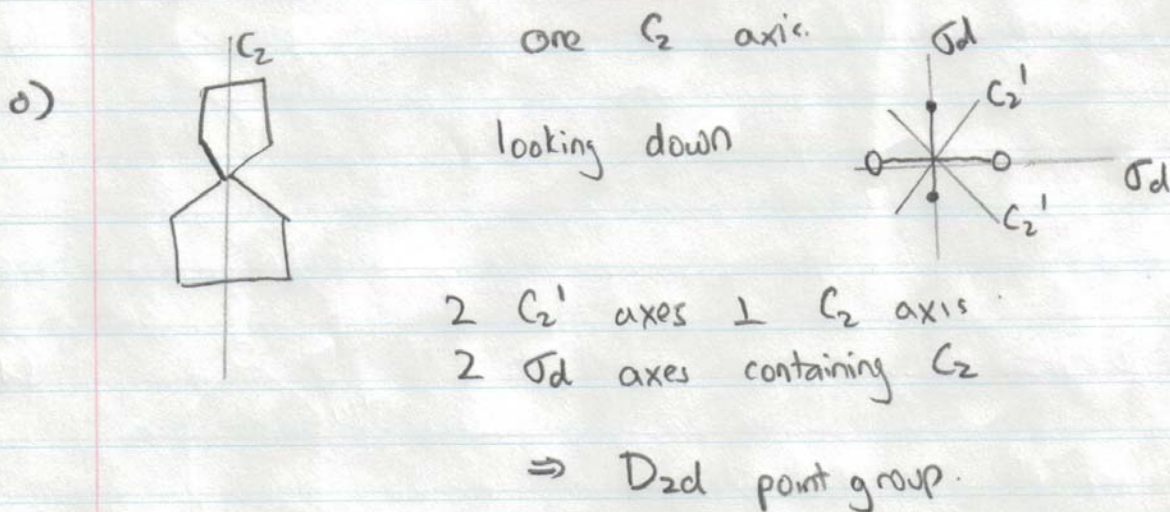 one C₂ axis.
C₂
σd
o)
C₂'
looking down
σd
C₂'
2 C₂' axes ⊥ C₂ axis.
2 σd axes containing C₂
⇒ D₂d point group.